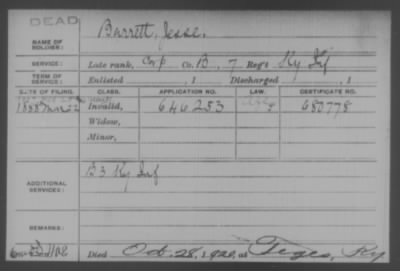 DEAD
NAME OF SOLDIER: Barrett, Jesse.
SERVICE: Late rank, Corp Co. B, 7 Reg't Ky Inf
TERM OF SERVICE: Enlisted , 1 Discharged , 1
DATE OF FILING. CLASS. APPLICATION NO. LAW. CERTIFICATE NO.
1888 Mar 22 Invalid, 646253 680778
Widow,
Minor,
ADDITIONAL SERVICES: B 3 Ky Inf
REMARKS:
Died Oct. 28, 1920, at Teges, Ky